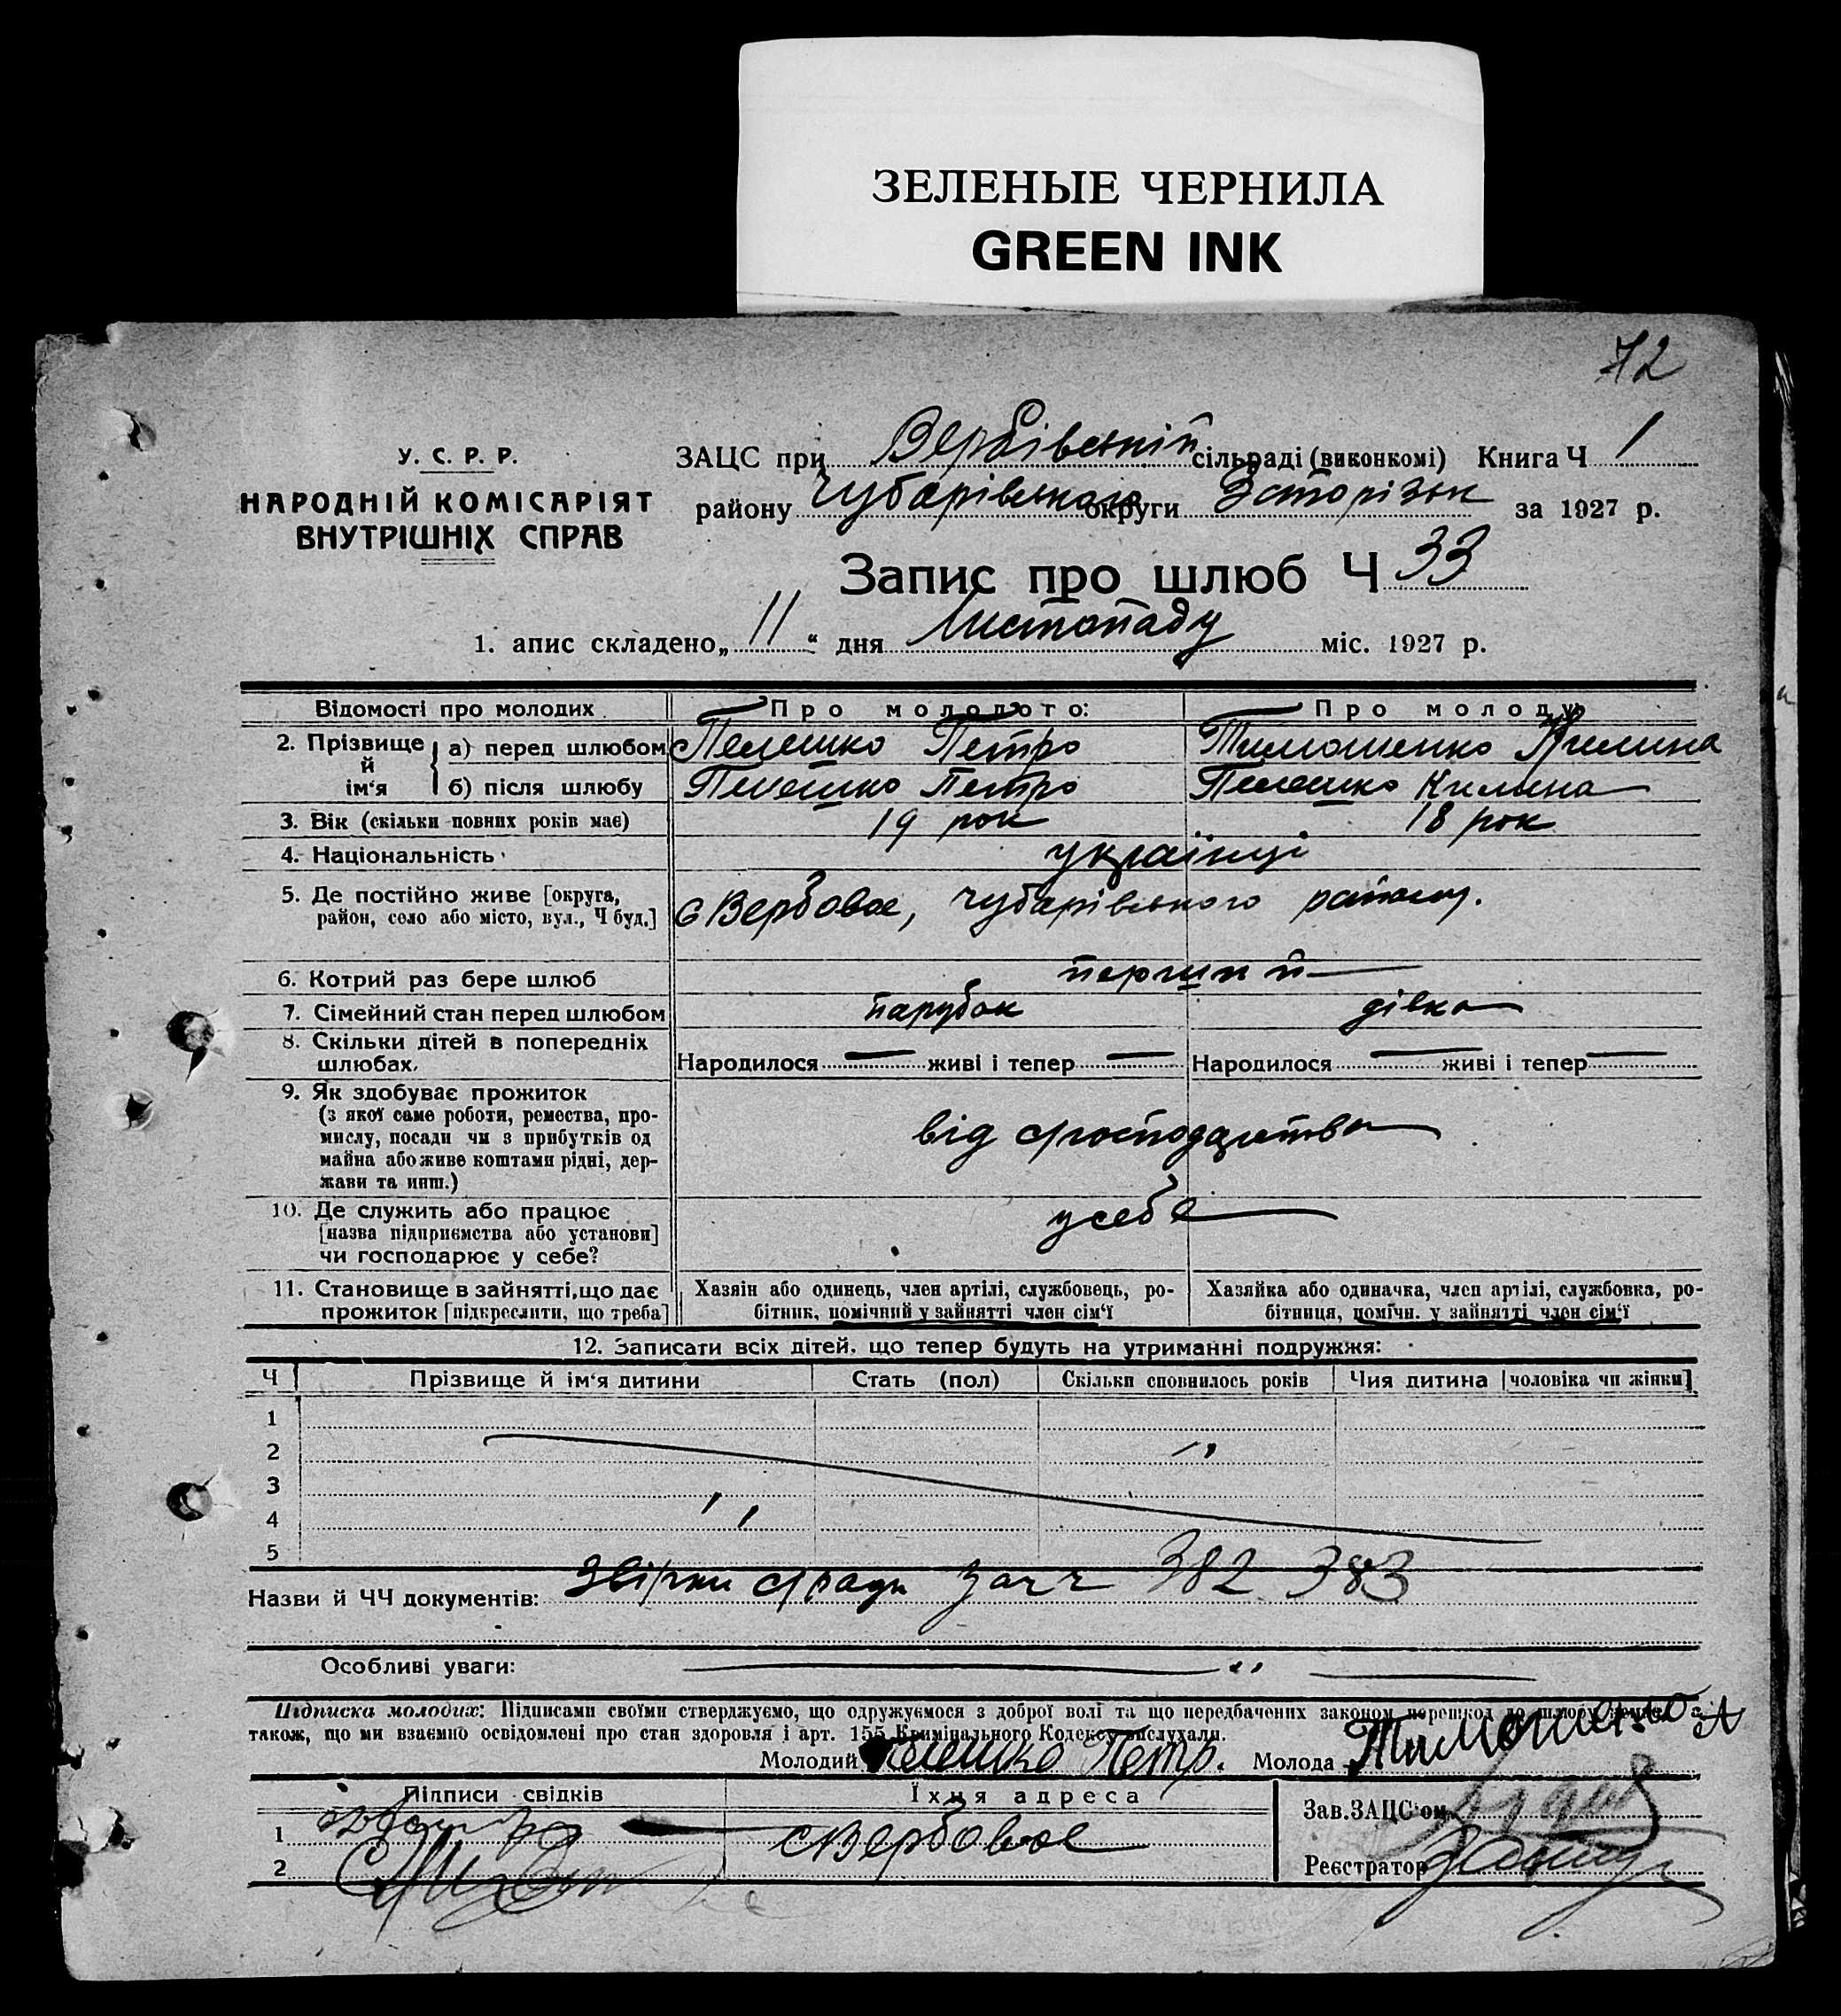 ЗЕЛЕНЫЕ ЧЕРНИЛА
GREEN INK
72
У. С. Р. Р.
НАРОДНІЙ КОМІСАРІЯТ
ВНУТРІШНІХ СПРАВ
ЗАЦС при Вербівській сільраді (виконкомі) Книга Ч 1
району Чубарівського округи Запорізьк за 1927 р.
Запис про шлюб Ч 33
1. апис складено „ 11 “ дня Листопаду міс. 1927 р.
Відомості про молодих Про молодого: Про молоду:
2. Прізвище й ім‘я а) перед шлюбом Пелешко Петро Тимошенко Килина
б) після шлюбу Пелешко Петро Пелешко Килина
3. Вік (скільки повних років має) 19 рок 18 рок
4. Національність українці
5. Де постійно живе [округа,
район, село або місто, вул., Ч буд.] с Вербовое, Чубарівського району.
6. Котрий раз бере шлюб перший
7. Сімейний стан перед шлюбом парубок дівка
8. Скільки дітей в попередніх
шлюбах. Народилося — живі і тепер — Народилося — живі і тепер —
9. Як здобуває прожиток
(з якої саме роботи, ремества, про-
мислу, посади чи з прибутків од
майна або живе коштами рідні, дер-
жави та инш.)
від господарства
10. Де служить або працює
[назва підприємства або установи]
чи господарює у себе?
у себе
11. Становище в зайнятті, що дає
прожиток [підкреслити, що треба]
Хазяін або одинець, член артілі, службовець, ро-
бітник, помічний у зайнятті член сім‘ї
Хазяйка або одиначка, член артілі, службовка, ро-
бітниця, помічн. у зайнятті член сім‘ї
12. Записати всіх дітей, що тепер будуть на утриманні подружжя:
Ч Прізвище й ім‘я дитини Стать (пол) Скільки сповнилось років Чия дитина [чоловіка чи жінки]
1
2
3
4
5
Назви й ЧЧ документів: 382 383
Особливі уваги:
Підписка молодих: Підписами своїми стверджуємо, що одружуємося з доброї волі та що передбачених законом перешкод до шлюбу немає, а
також, що ми взаємно освідомлені про стан здоровля і арт. 155 Кримінального Кодексу вислухали.
Молодий Пелешко Петр. Молода Тимошенко А
Підписи свідків Їхня адреса
Зав. ЗАЦС‘ом
1 с Вербовое
Реєстратор
2